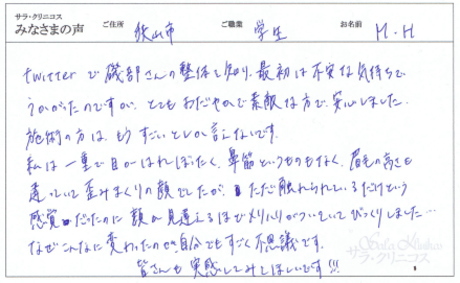 サラ・クリニコス
みなさまの声 ご住所 狭山市 ご職業 学生 お名前 M.H
twitterで磯部さんの整体を知り、最初は不安な気持ちで
うかがったのですが、とてもおだやかで素敵な方で、安心しました。
施術の方は、もうすごいとしか言えないです。
私は一重で目がはればったく、鼻筋というものもなく、眉毛の高さも
違っていて歪みまくりの顔でしたが、ただ触れられているだけという
感覚だったのに顔が見違えるほどメリハリがついていてびっくりしました…
なぜこんなに変わったのか自分でもすごく不思議です。
皆さんも実感してみてほしいです!!!
サラ・クリニコス